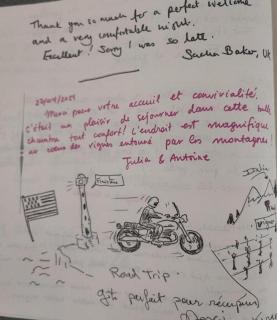 Thank you so much for a perfect welcome
and a very comfortable night.
Excellent! Sorry I was so late.
Sacha Baker, UK
Merci pour votre accueil et convivialité.
C'était un plaisir de séjourner dans cette belle
chambre tout confort! L'endroit est magnifique
au coeur des vignes entouré par les montagnes
Julia & Antoine
Finistère
Road Trip.
gîte parfait pour récupérer